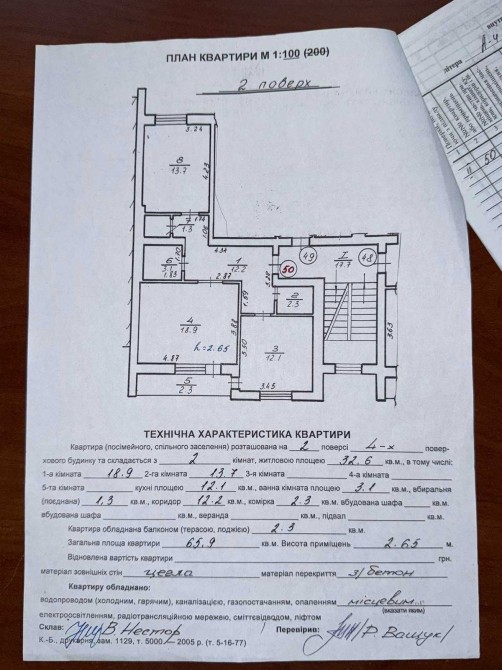 ПЛАН КВАРТИРИ М 1:100 (200)
2 поверх
3.24
8
13.7
4.23
7
1.3
1.06
4.34
6
3.1
1.83
1
12.2
2.87
3.28
1.89
50
49
I
17.7
48
2
2.3
3.63
4
18.9
h=2.65
3.88
4.87
5
2.3
3.50
3
12.1
3.45
ТЕХНІЧНА ХАРАКТЕРИСТИКА КВАРТИРИ
Квартира (посімейного, спільного заселення) розташована на 2 поверсі 4-х повер-
хового будинку та складається з 2 кімнат, житловою площею 32.6 кв.м., в тому числі:
1-а кімната 18.9 2-га кімната 13.7 3-я кімната 4-а кімната
5-та кімната кухні площею 12.1 кв.м., ванна кімната площею 3.1 кв.м., вбиральня
(поєднана) 1,3 кв.м., коридор 12.2 кв.м., комірка 2.3 кв.м. вбудована шафа кв.м.
вбудована шафа кв.м., веранда кв.м., підвал кв.м.
Квартира обладнана балконом (терасою, лоджією) 2.3 кв.м.
Загальна площа квартири 65.9 кв.м. Висота приміщень 2.65 м.
Відновлена вартість квартири грн.
матеріал зовнішніх стін цегла матеріал перекриття з/бетон
Квартиру обладнано:
водопроводом (холодним, гарячим), каналізацією, газопостачанням, опаленням місцевим
(вказати яким)
електроосвітленням, радіотрансляційною мережею, сміттєвідводом, ліфтом
Склав: В. Нестор Перевірив: Р. Ващук
К.-Б., друкарня, зам. 1129, т. 5000.— 2005 р. (т. 5-16-77)
літера
50